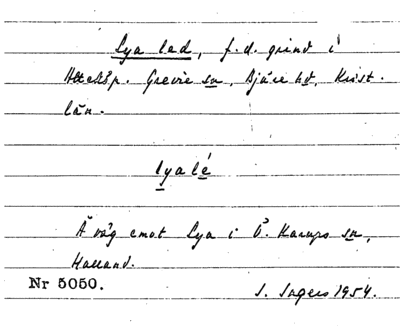 Lya led, f.d. grind i
Grevie sn, Bjäre hd, Krist.
län.
lyalé
Å väg emot Lya i Ö. Karups sn,
Halland.
Nr 5050.
S. Ingers 1954.